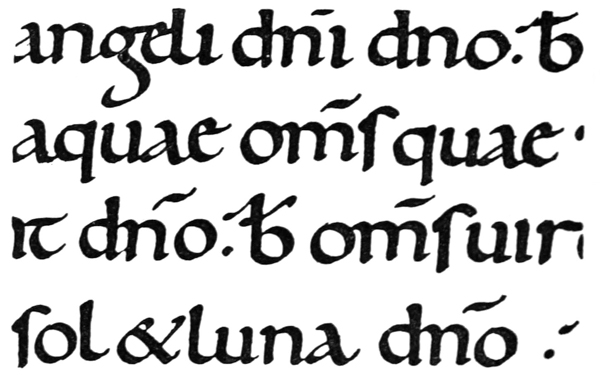 angeli dnī dno. ƀ
aquae om̃ſ quae ·
ıt dño. ƀ om̃ſ uır
ſol & luna dnõ .·